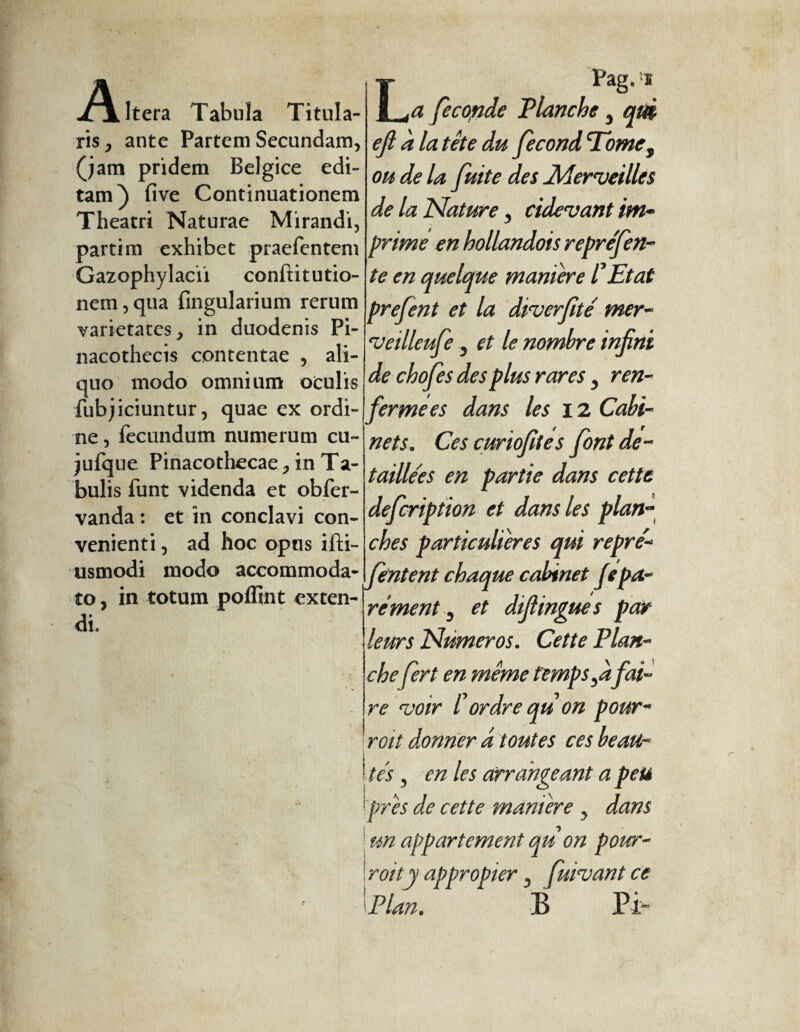 Altera Tabula Titula-
ris, ante Partem Secundam,
(jam pridem Belgice edi-
tam) ſive Continuationem
Theatri Naturae Mirandi,
partim exhibet praeſentem
Gazophylacii conſtitutio-
nem, qua ſingularium rerum
varietates, in duodenis Pi-
nacothecis contentae, ali-
quo modo omnium oculis
ſubjiciuntur, quae ex ordi-
ne, ſecundum numerum cu-
juſque Pinacothecae, in Ta-
bulis ſunt videnda et obſer-
vanda: et in conclavi con-
venienti, ad hoc opus iſti-
usmodi modo accommoda-
to, in totum poſſint exten-
di.
Pag.
La ſeconde Planche, qui
eſt à la tête du ſecond Tome,
ou de la ſuite des Merveilles
de la Nature, cidevant im-
primé en hollandois repréſen-
te en quelque manière l'Etat
preſent et la diverſité mer-
veilleuſe, et le nombre infini
de choſes des plus rares, ren-
fermées dans les 12 Cabi-
nets. Ces curioſités ſont dé-
taillées en partie dans cette
deſcription et dans les plan-
ches particulières qui repré-
ſentent chaque cabinet ſépa-
rément, et diſtingués par
leurs Números. Cette Plan-
che ſert en même temps, à fai-
re voir l'ordre qu'on pour-
roit donner à toutes ces beau-
tés, en les arrangeant a peu
près de cette manière, dans
un appartement qu'on pour-
roit y appropier, ſuivant ce
Plan. B Pi-